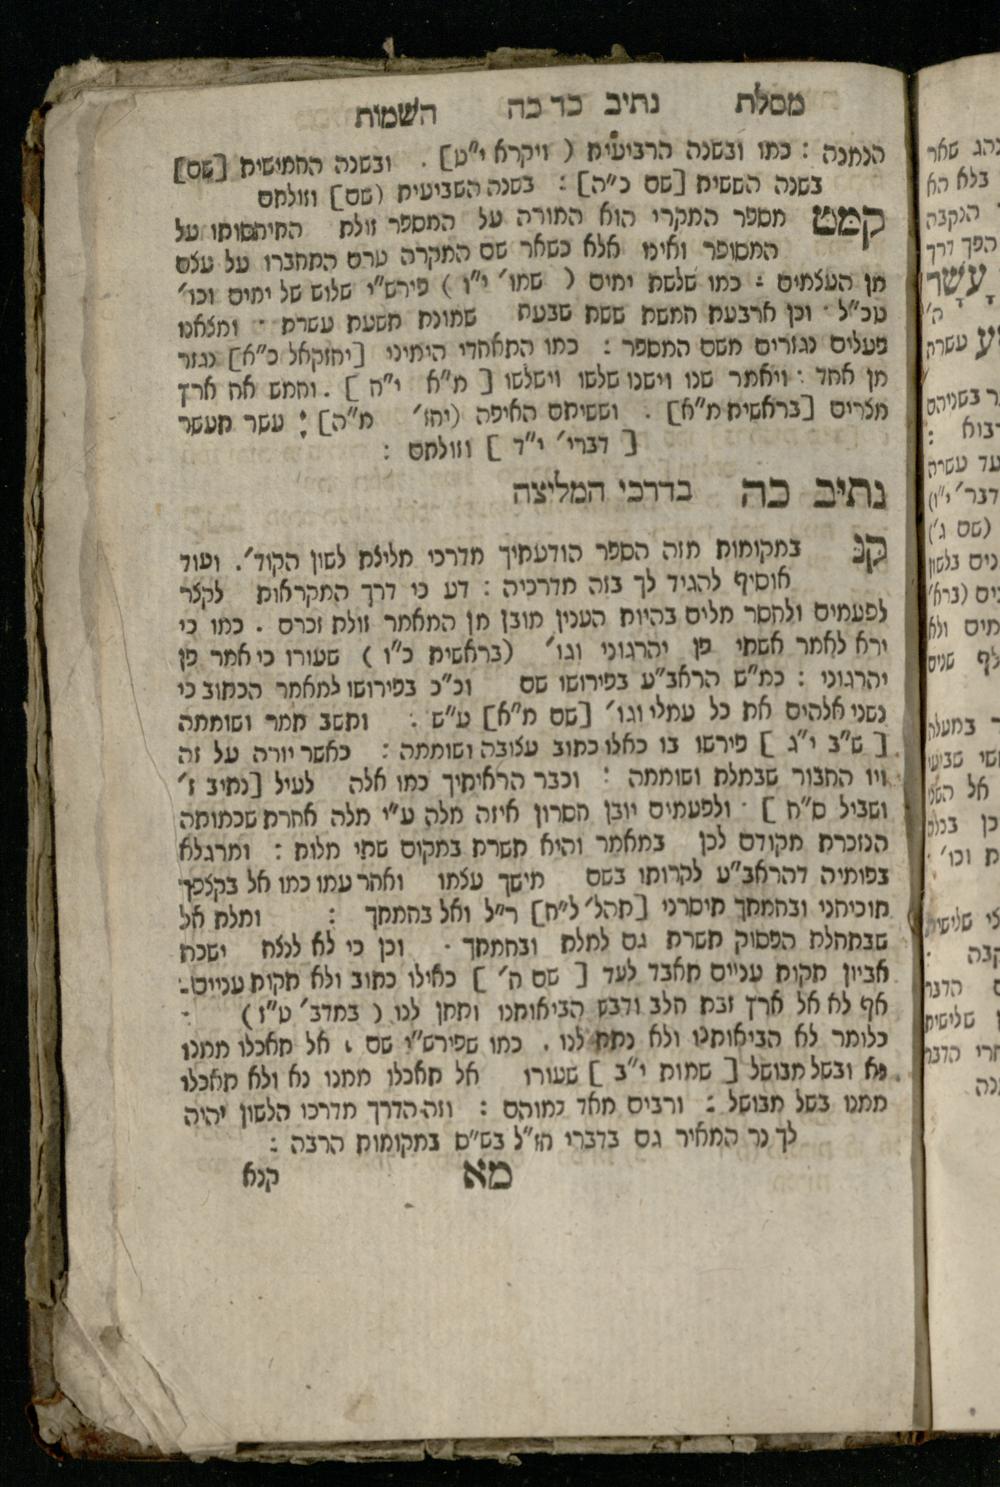 מסלת נתיב כד כה השמות
הנמנה : כמו ובשנה הרביעית ( ויקרא י"ט] . ובשנה החמישית [שם]
בשנה הששית [שם כ"ה] : בשנה השביעית (שם] וזולתם
קמט מספר המקרי הוא המורה על המספר זולת התיחסותו על
המסופר ואינו אלא כשאר שם המקרה טרם התחברו על עצם
מן העצמים : כמו שלשת ימים ( שמו' י"ו ) פירש"י שלוש של ימים וכו'
עכ"ל . וכן ארבעת חמשת ששת שבעת שמונת תשעת עשרת . ומצאנו
פעלים נגזרים משם המספר : כמו התאחדי הימיני [יחזקאל כ"א] נגזר
מן אחד : ויאמר שנו וישנו שלשו וישלשו [ מ"א י"ח ] . וחמש את ארץ
מצרים [בראשית מ"א] . וששיתם האיפה (יחז' מ"ה] : עשר תעשר
[ דברי' י"ד ] וזולתם :
נתיב כה בדרכי המליצה
קנ במקומות מזה הספר הודעתיך מדרכי מלילת לשון הקוד' . ועוד
אוסיף להגיד לך בזה מדרכיה : דע כי דרך המקראות לקצר
לפעמים ולחסר מלים בהיות הענין מובן מן המאמר זולת זכרם . כמו כי
ירא לאמר אשתי פן יהרגוני וגו' (בראשית כ"ו ) שעורו כי אמר פן
יהרגוני : כמ"ש הראב"ע בפירושו שם וכ"כ בפירושו למאמר הכתוב כי
נשני אלהים את כל עמלי וגו' [שם מ"א] ע"ש : ותשב תמר ושוממה
[ ש"ב י"ג ] פירשו בו כאלו כתוב עצובה ושוממה : כאשר יורה על זה
ויו החבור שבמלת ושוממה : וכבר הראיתיך כמו אלה לעיל [נתיב ז'
ושביל ס"ח ] . ולפעמים יובן חסרון איזה מלה ע"י מלה אחרת שכמותה
הנזכרת מקודם לכן במאמר והיא תשרת במקום שתי מלות : ומרגלא
בפומיה דהראב"ע לקרותו בשם מושך עצמו ואחר עמו כמו אל בקצפך
תוכיחני ובחמתך תיסרני [תהל' ל"ח] ר"ל ואל בחמתך : ומלת אל
שבתחלת הפסוק תשרת גם למלת ובחמתך . וכן כי לא לנצח ישכח
אביון תקות עניים תאבד לעד [ שם ה' ] כאילו כתוב ולא תקות עניים :
אף לא אל ארץ זבת חלב ודבש הביאותנו ותתן לנו ( במדב' ט"ז ) :
כלומר לא הביאותנו ולא נתת לנו . כמו שפירש"י שם . אל תאכלו ממנו
נא ובשל מבושל [ שמות י"ב ] שעורו אל תאכלו ממנו נא ולא תאכלו
ממנו בשל מבושל : ורבים מאד כמוהם : וזה הדרך מדרכי הלשון יהיה
לך נר המאיר גם בדברי חז"ל בש"ס במקומות הרבה :
מא קנא